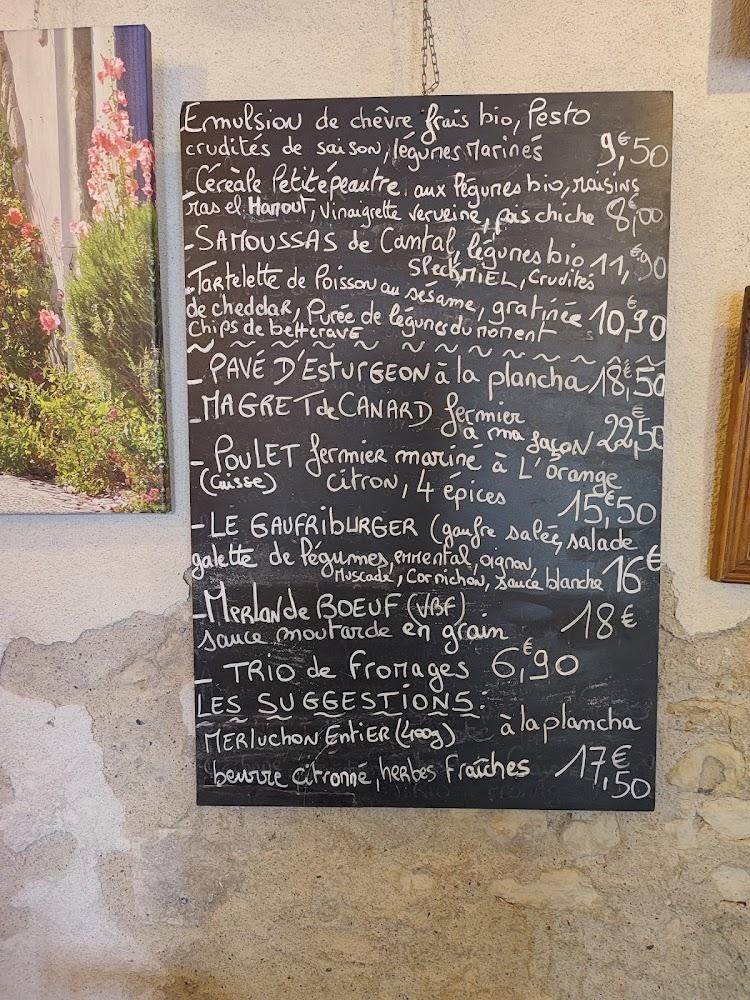 Emulsion de chêvre frais bio, Pesto
crudités de saison, légumes marinés 9,€50
Céréale Petit épeautre aux légumes bio, raisins
ras el Hanout, Vinaigrette Verveine, pois chiche 8,€00
-SAMOUSSAS de Cantal, légumes bio 11,€90
MIEL, Crudités
-Tartelette de Poisson au sésame, gratinée
de cheddar, Purée de légumes du moment 10,€90
chips de betterave
- PAVÉ D'ESTURGEON à la plancha 18,€50
-MAGRET de CANARD fermier
à ma façon 22,€50
- POULET fermier mariné à L'orange
(Cuisse) citron, 4 épices 15,€50
-LE GAUFRIBURGER (gaufre salée, salade
galette de légumes, emmental, oignon,
Muscade, Cornichon, sauce blanche 16€
-MERLAN de BOEUF (VBF) 18€
sauce moutarde en grain
- TRIO de Fromages 6,€90
LES SUGGESTIONS:
MERLUCHON ENTIER (400g) à la plancha
beurre citronné, herbes fraîches 17,€50